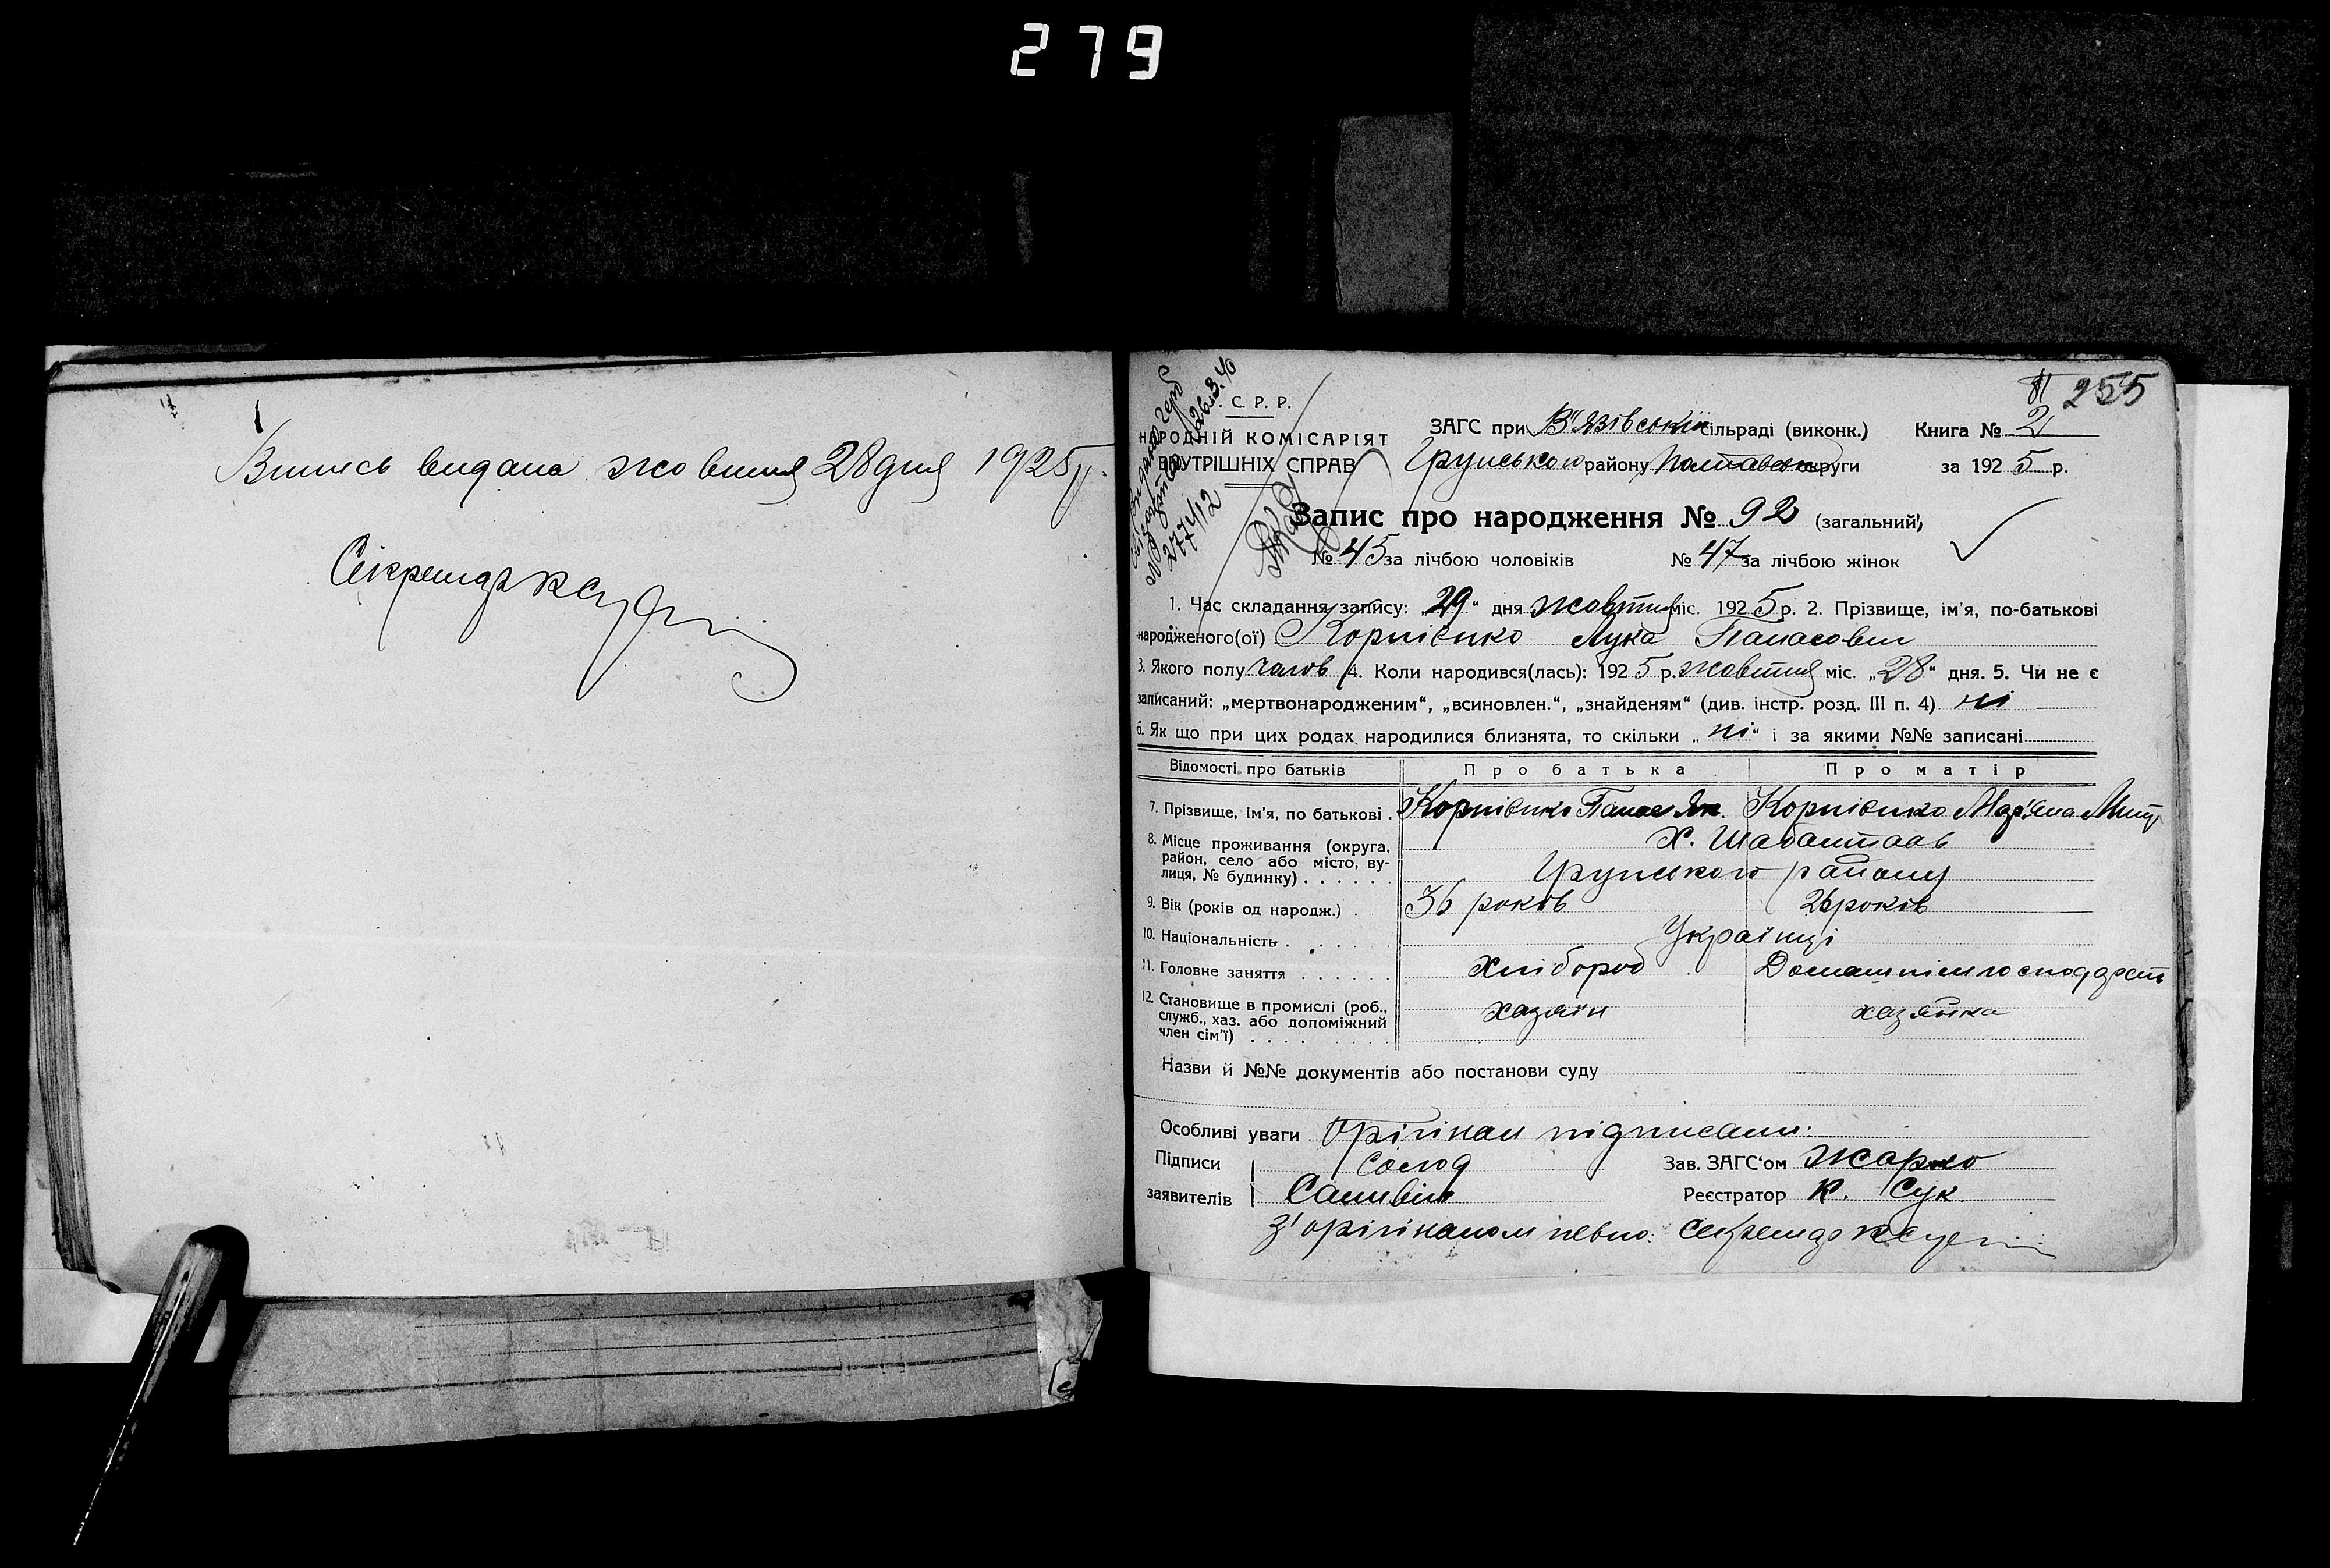 279
Випись видана жовтня 28 дня 1925 р.
Секретар
255
С. Р. Р.
НАРОДНІЙ КОМІСАРІЯТ
ВНУТРІШНІХ СПРАВ
26.3.40
277412
ЗАГС при В'язівській сільраді (виконк.) Книга № 2
Грунського району Полтавськ округи за 1925 р.
Запис про народження № 92 (загальний)
№ 45 за лічбою чоловіків № 47 за лічбою жінок
1. Час складання запису: „29“ дня жовтня міс. 1925 р. 2. Прізвище, ім'я, по-батькові
народженого(ої) Корнієнко Лука Панасович
3. Якого полу чолов 4. Коли народився(лась): 1925 р. жовтня міс. „28“ дня. 5. Чи не є
записаний: „мертвонародженим“, „всиновлен.“, „знайденям“ (див. інстр. розд. III п. 4) ні
6. Як що при цих родах народилися близнята, то скільки „ні“ і за якими №№ записані
Відомості про батьків Про батька Про матір
7. Прізвище, ім'я, по батькові . Корнієнко Панас Як. Корнієнко Мар'яна Мит
8. Місце проживання (округа, район, село або місто, вулиця, № будинку) . . . . . Х. Шабалтаїв
Грунського району
9. Вік (років од народж.) . 36 років 26 років
10. Національність . . . . . Українці
11. Головне заняття . . . . . Хлібороб Домашнім господарств
12. Становище в промислі (роб., служб., хаз. або допоміжний член сім'ї) . . . . хазяїн хазяйка
Назви й №№ документів або постанови суду
Особливі уваги Орігінал підписали:
Підписи Солод Зав. ЗАГС'ом Жарко
заявителів Реєстратор К. Сук
З'орігіналом певно: Секретар